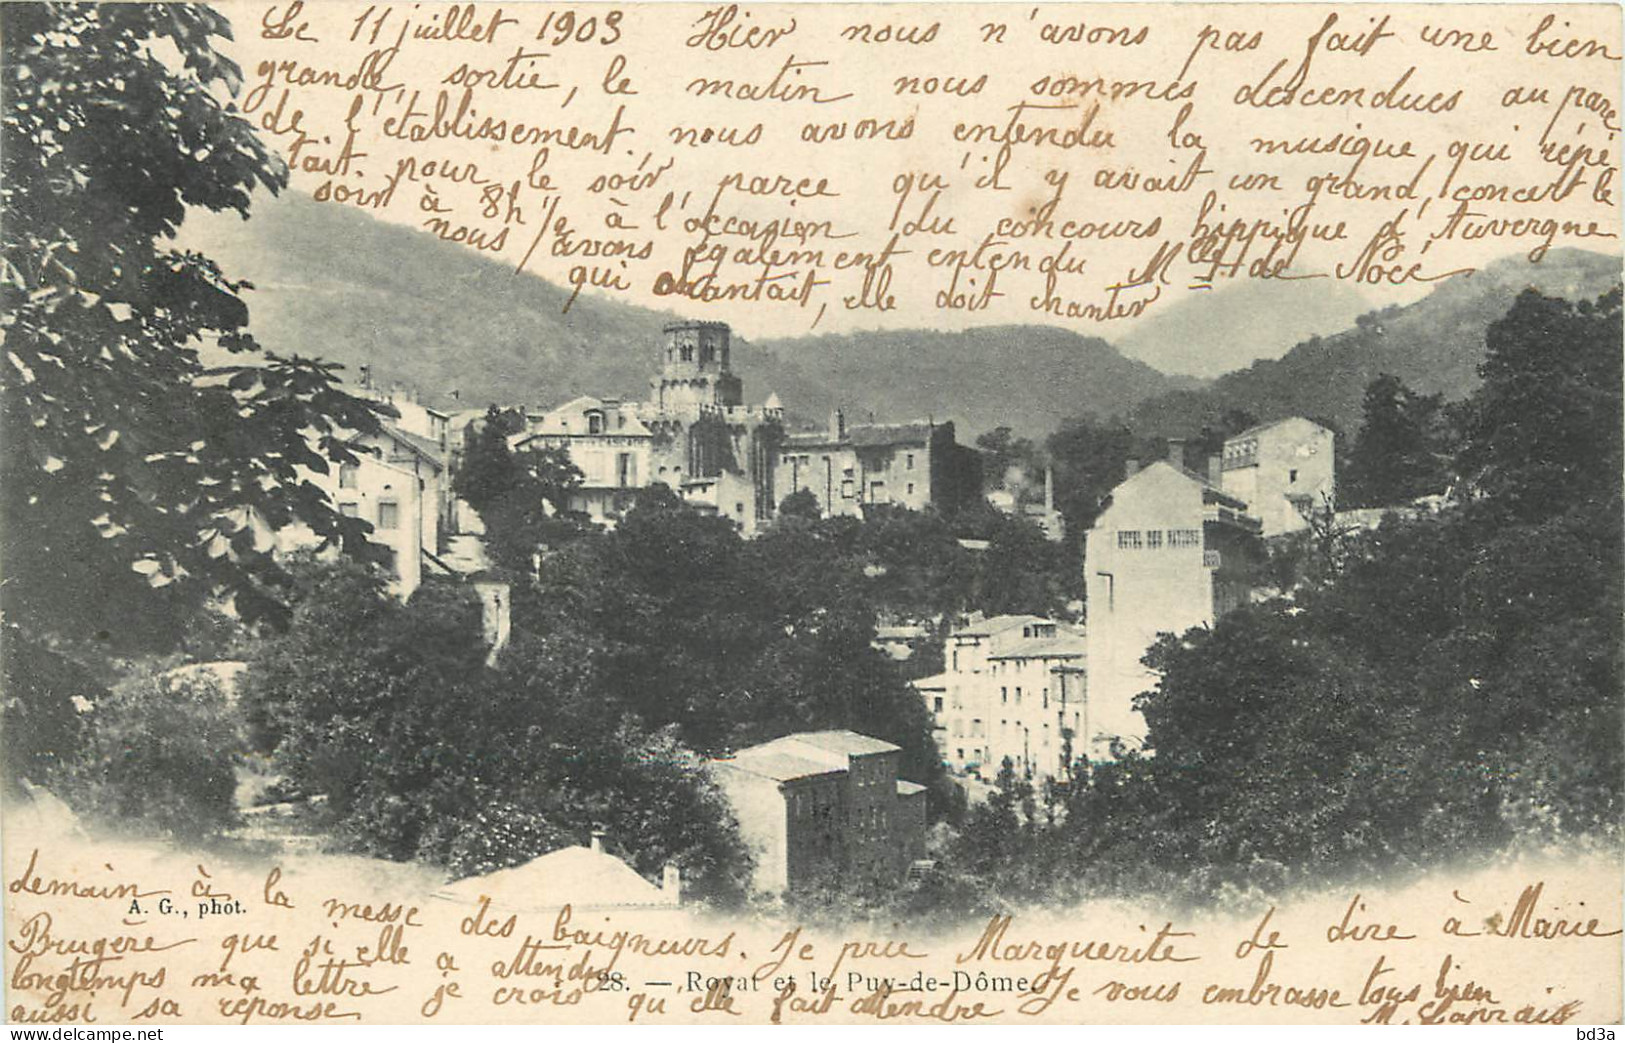 Le 11 juillet 1903 Hier nous n'avons pas fait une bien
grande sortie, le matin nous sommes descendues au parc
de l'établissement. nous avons entendu la musique qui répé
tait pour le soir parce qu'il y avait un grand concert le
soir à 8h 1/2 à l'occasion du concours hippique d'Auvergne
nous avons également entendu Mlle de Nocé
qui chantait, elle doit chanter
CASCADE
HOTEL DES NATIONS
demain à la messe des baigneurs. Je prie Marguerite de dire à Marie
A. G., phot.
Brugère que si elle a attendre
longtemps ma lettre je crois qu'elle fait attendre
aussi sa réponse. Je vous embrasse tous bien
28. — Royat et le Puy-de-Dôme.
bd3a